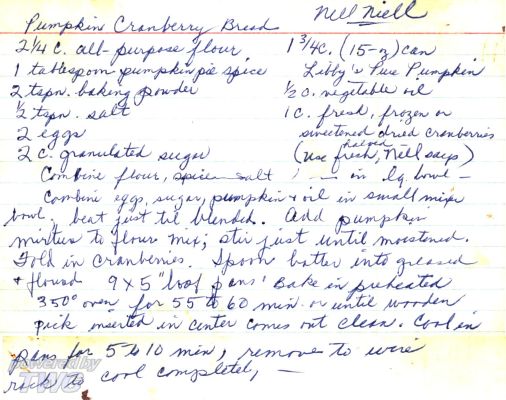 Pumpkin Cranberry Bread
Nell Niell
2 1/4 c. all-purpose flour
1 tablespoon pumpkin pie spice
2 tspn. baking powder
1/2 tspn. salt
2 eggs
2 c. granulated sugar
1 3/4 c. (15-oz) can
Libby's Pure Pumpkin
1/2 c. vegetable oil
1 c. fresh, frozen or
sweetened dried cranberries
halved
(use fresh, Nell says)
Combine flour, spice salt — in lg. bowl —
Combine eggs, sugar, pumpkin + oil in small mixe
bowl. beat just til blended. Add pumpkin
mixture to flour mix; stir just until moistened.
Fold in cranberries. Spoon batter into greased
+ floured 9 x 5" loaf pans. Bake in preheated
350° oven for 55 to 60 min. or until wooden
pick inserted in center comes out clean. Cool in
pans for 5 to 10 min, remove to wire
rack to cool completely, —
powered by
TWC